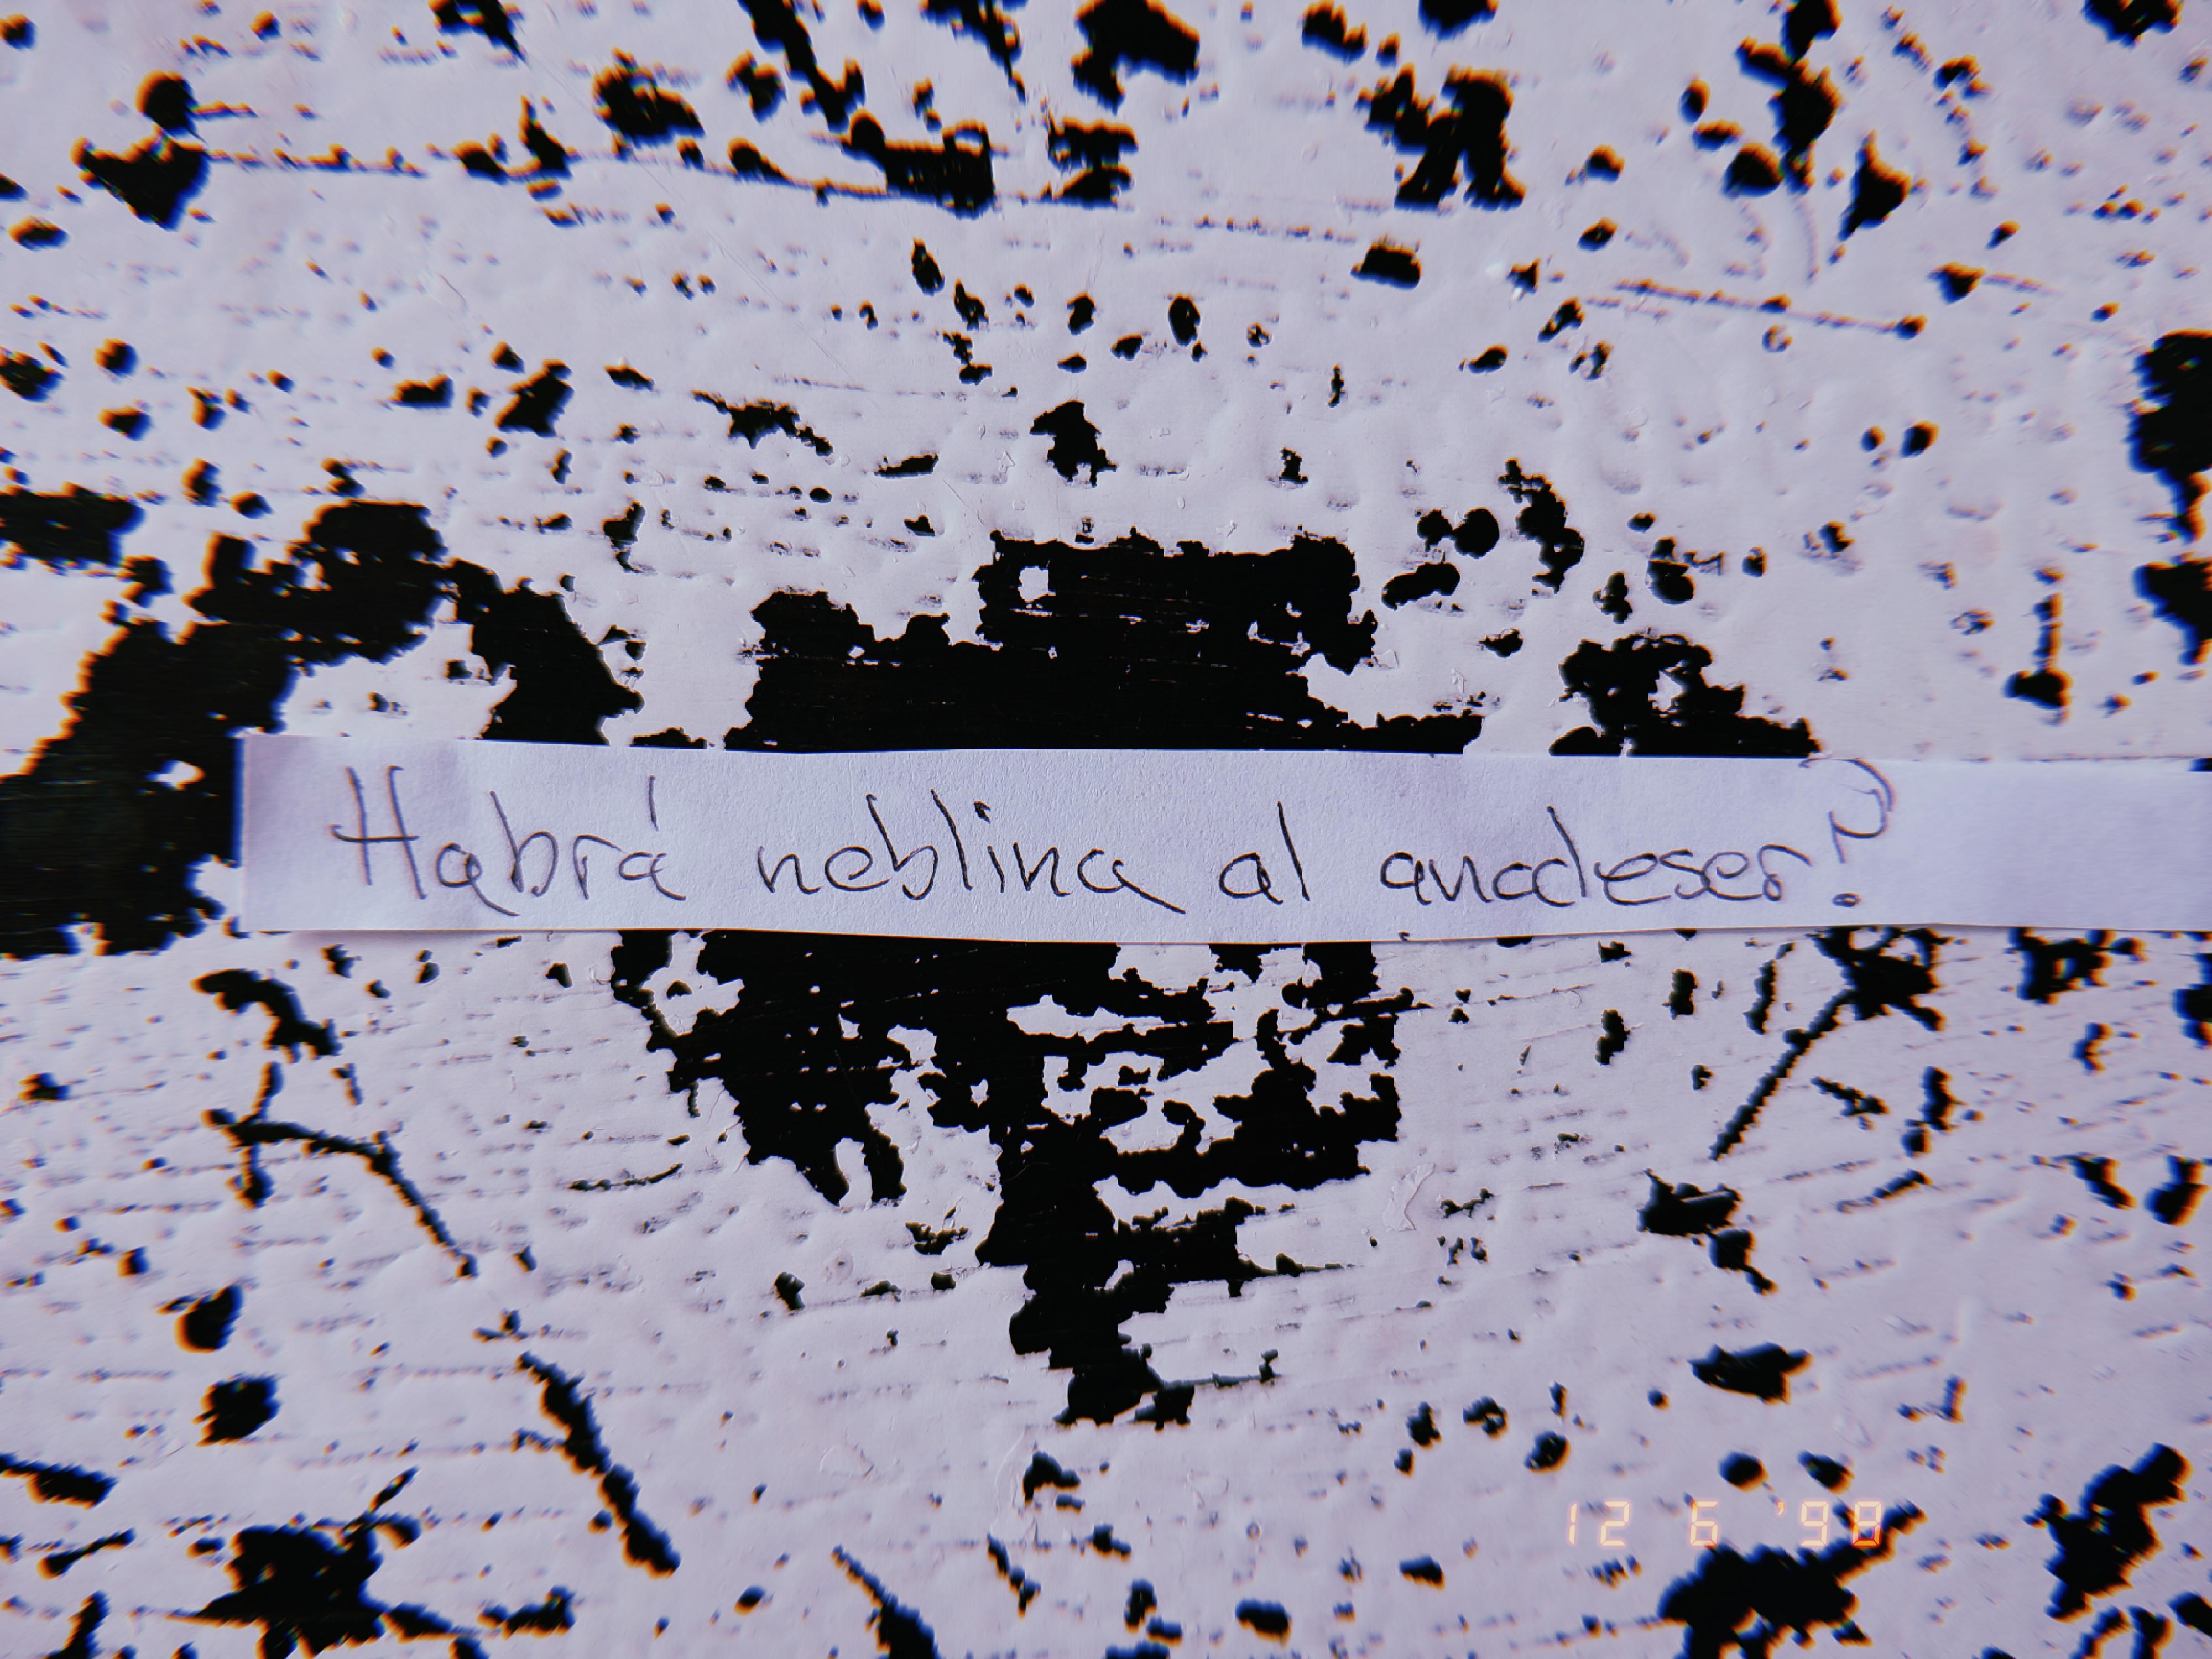 Habrá neblina al anodeser?
12 6 '98